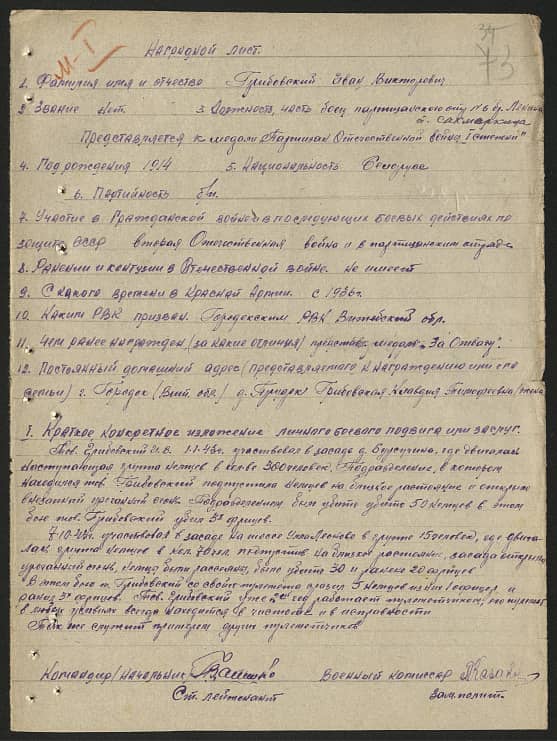 34
73
М-I
Наградной лист.
1. Фамилия имя и отчество Грибовский Иван Викторович
2. Звание нет 3. Должность, часть боец партизанского отр. №6 бр. Ленина
Представляется к медали "Партизан Отечественной войны I степени"
4. Год рождения 1914 5. Национальность Белорус
6. Партийность б/п.
7. Участие в Гражданской войне и в последующих боевых действиях по
защите СССР вторая Отечественная война и в партизанском отряде
8. Ранении и контузии в Отечественной войне. не имеет
9. С какого времени в Красной Армии. с 1936 г.
10. Каким РВК призван. Городокским РВК Витебской обл.
11. Чем ранее награжден (за какие отличия) медаль "За Отвагу".
12. Постоянный домашний адрес (представляемого к награждению или его
семьи) г. Городок (Вит. обл.) д. Грибовская Клавдия Тимофеевна (жена
I. Краткое конкретное изложение личного боевого подвига или заслуг.
Тов. Грибовский И.В. 1-1-43г. участвовал в засаде д. где двигалась
наступающая группа немцев в кол-ве 300 человек. Подразделение, в котором
находился тов. Грибовский подпустило немцев на близкое растояние и открыло
внезапный огонь. Подразделением было убито 50 немцев в этом
бою тов. Грибовский убил 5 фрицев.
7-10-43г. участвовал в засаде на шоссе в группе 15 человек, где двига-
лась группа немцев в кол. 70 чел. подпустив на близкое растояние, засада открыла
огонь, немцы были рассеяны, было убито 30 и ранено 20 фрицев
В этом бою т. Грибовский со своего пулемета сразил 5 немцев из них 1 офицер и
ранил 3х фрицев. Тов. Грибовский уже 2й год работает пулеметчиком,
в любых условиях всегда находится в чистоте и в исправности
Так же служит примером других пулеметчиков.
Командир/начальник Военный комиссар
Ст. лейтенант зам. полит.